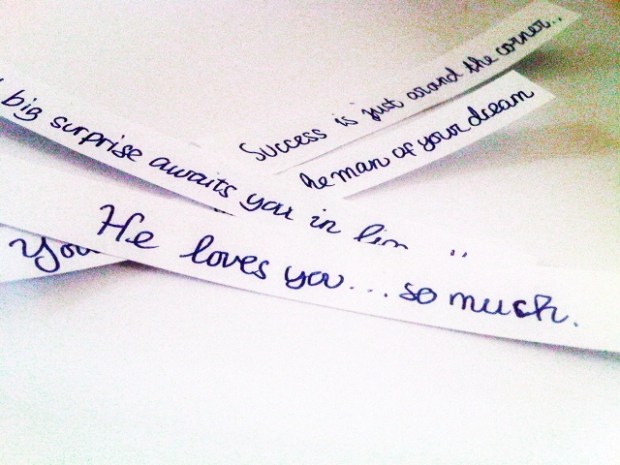 Success is just around the corner..
he man of your dream
big surprise awaits you in
He loves you... so much.
You